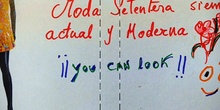 Moda Setentera siem
actual y Moderna
¡¡you can look!!